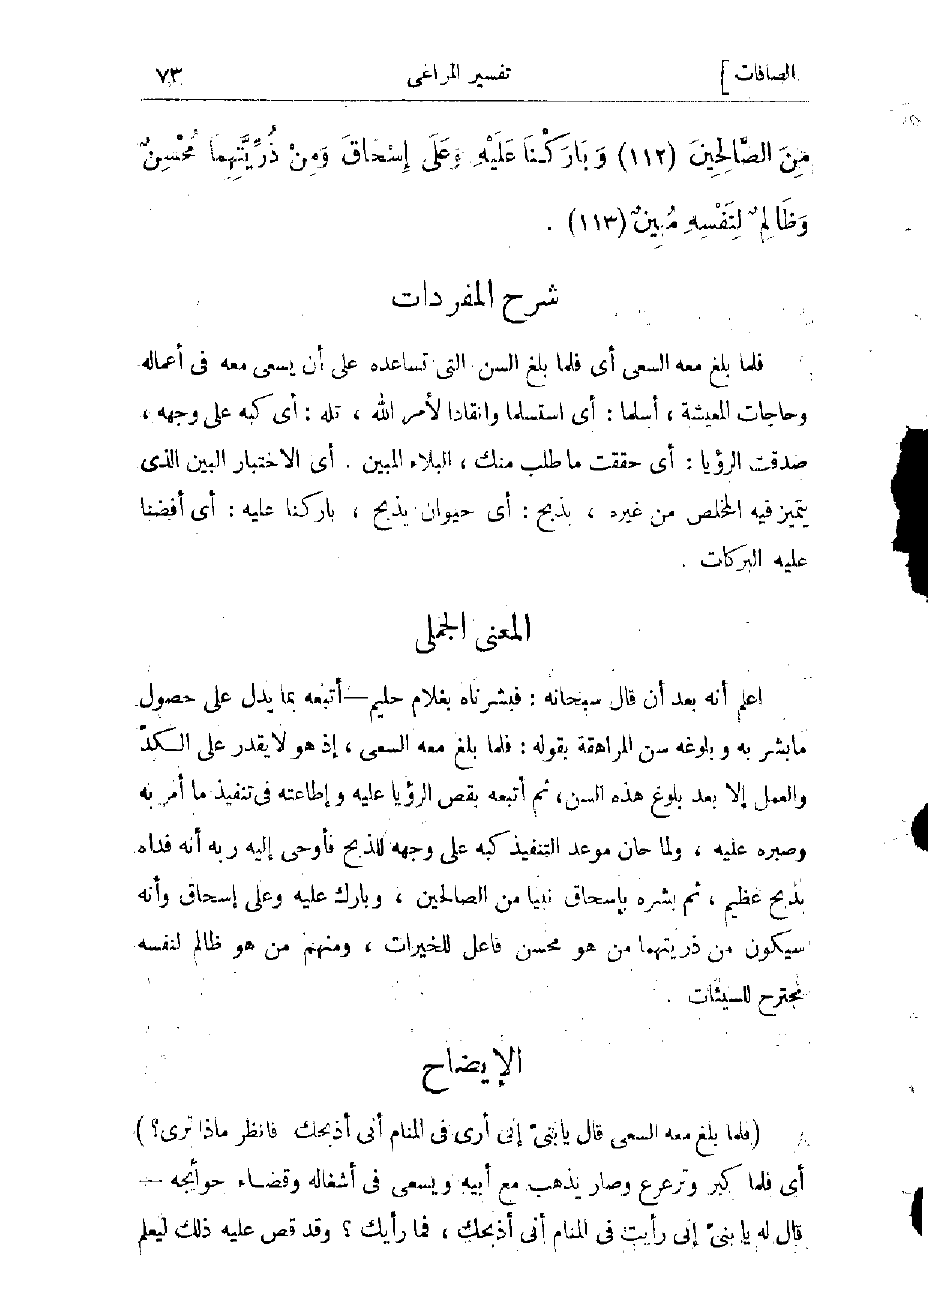 الصافات ] تفسير المراغى ٧٣
مِنَ الصَّالِحِينَ (١١٢) وَبَارَكْنَا عَلَيْهِ وَعَلَى إِسْحَاقَ وَمِنْ ذُرِّيَّتِهِمَا مُحْسِنٌ
وَظَالِمٌ لِنَفْسِهِ مُبِينٌ (١١٣) .
شرح المفردات
فلما بلغ معه السعى أى فلما بلغ السن التى تساعده على أن يسعى معه فى أعماله
وحاجات المعيشة ، أسلما : أى استسلما وانقادا لأمر الله ، تله : أى كبه على وجهه ،
صدقت الرؤيا : أى حققت ما طلب منك ، البلاء المبين . أى الاختبار البين الذى
يتميز فيه المخلص من غيره ، بذبح : أى حيوان يذبح ، باركنا عليه : أى أفضنا
عليه البركات .
المعنى الجملى
اعلم أنه بعد أن قال سبحانه : فبشرناه بغلام حليم — أتبعه بما يدل على حصول
مابشر به وبلوغه سن المراهقة بقوله : فلما بلغ معه السعى ، إذ هو لايقدر على الكدّ
والعمل إلا بعد بلوغ هذه السن، ثم أتبعه بقص الرؤيا عليه وإطاعته فى تنفيذ ما أمر به
وصبره عليه ، ولما حان موعد التنفيذ كبه على وجهه للذبح فأوحى إليه ربه أنه فداه
بذبح عظيم ، ثم بشره بإسحاق نبيا من الصالحين ، وبارك عليه وعلى إسحاق وأنه
سيكون من ذريتهما من هو محسن فاعل للخيرات ، ومنهم من هو ظالم لنفسه
مجترح للسيئات .
الإيضاح
(فلما بلغ معه السعى قال يابنىّ إنى أرى فى المنام أنى أذبحك فانظر ماذا ترى؟)
أى فلما كبر وترعرع وصار يذهب مع أبيه ويسعى فى أشغاله وقضاء حوائجه —
قال له يابنىّ إنى رأيت فى المنام أنى أذبحك ، فما رأيك ؟ وقد قص عليه ذلك ليعلم